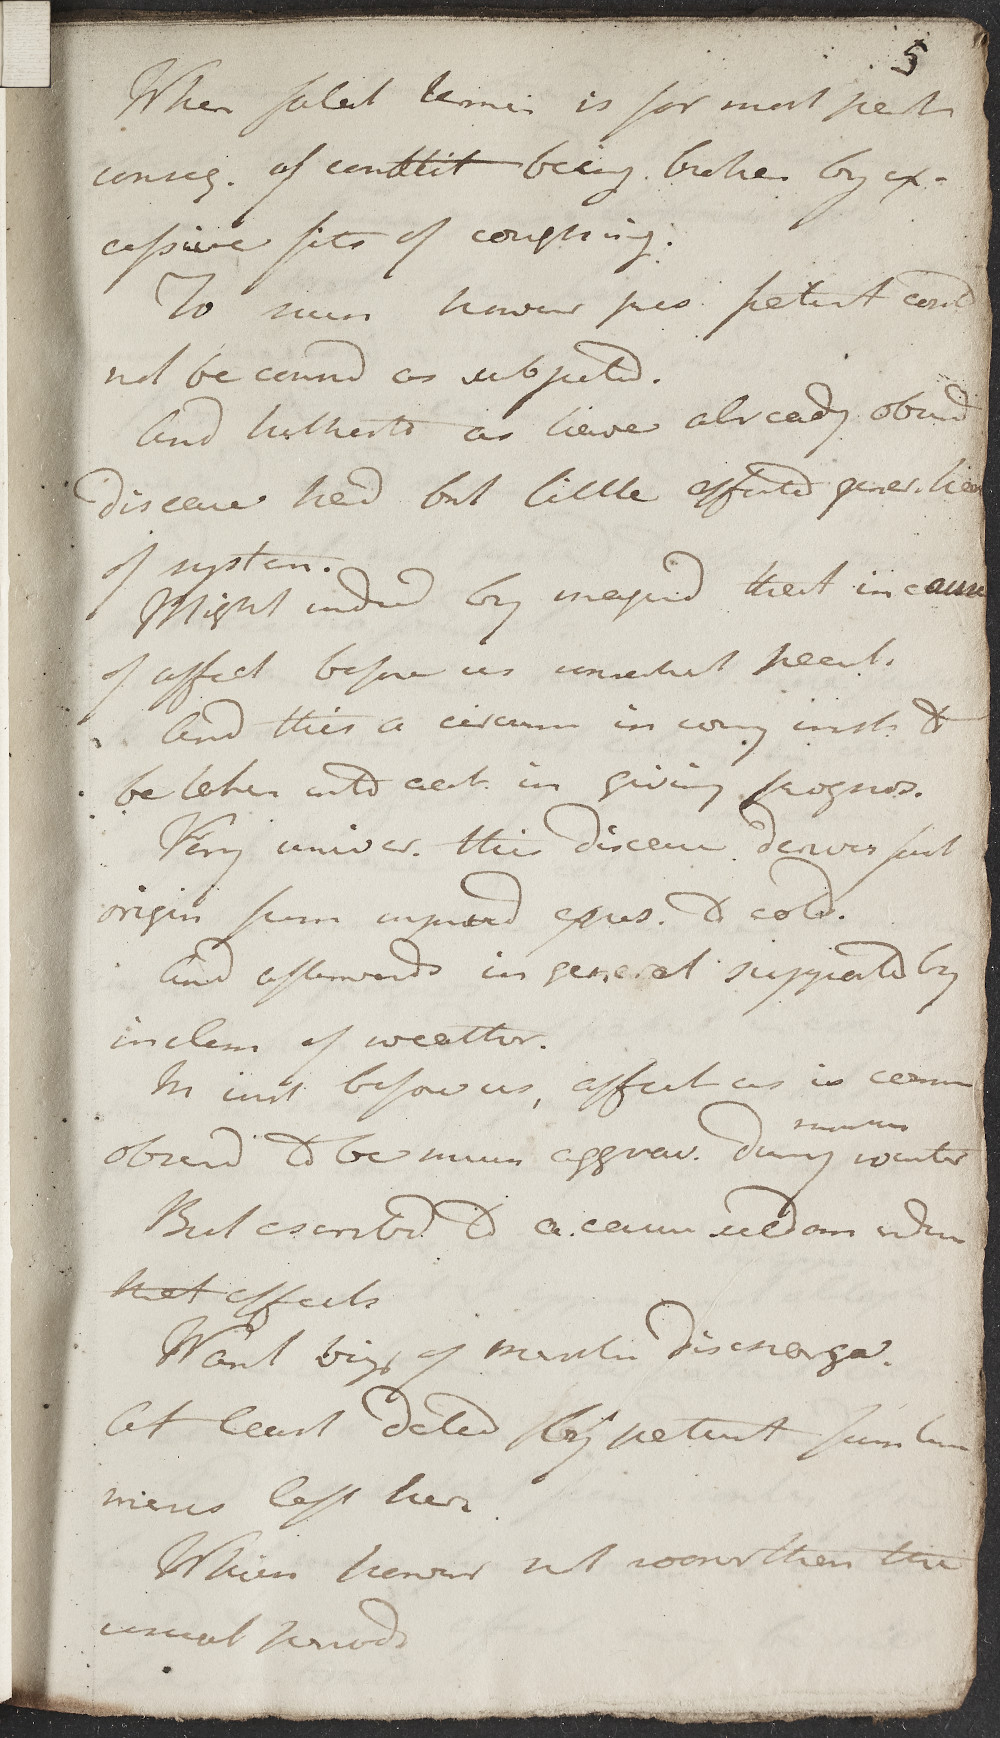 5
When fatal termin is for most part
conseq. of constit being broken by ex-
cessive fits of coughing.
To such however pres patient coud
not be consid as subjected.
And hitherto as have already obsed
disease had but little affected gener. hea
of system.
Might indeed by imagind that in case
of affect before us somewhat
And this a circum in every inst. to
be taken into acct. in giving prognos.
Very univer. this disease derives first
origin from impruad expos. to cold.
And afterwards in general supported by
inclem of weather.
In inst before us, affect as is comm
obserd to be much aggrav. during winter
months
But ascribd to a cause seldom
that effects
Want of menstru discharge.
At least dated by patient from
menses left her
Which however not sooner than the
usual periods